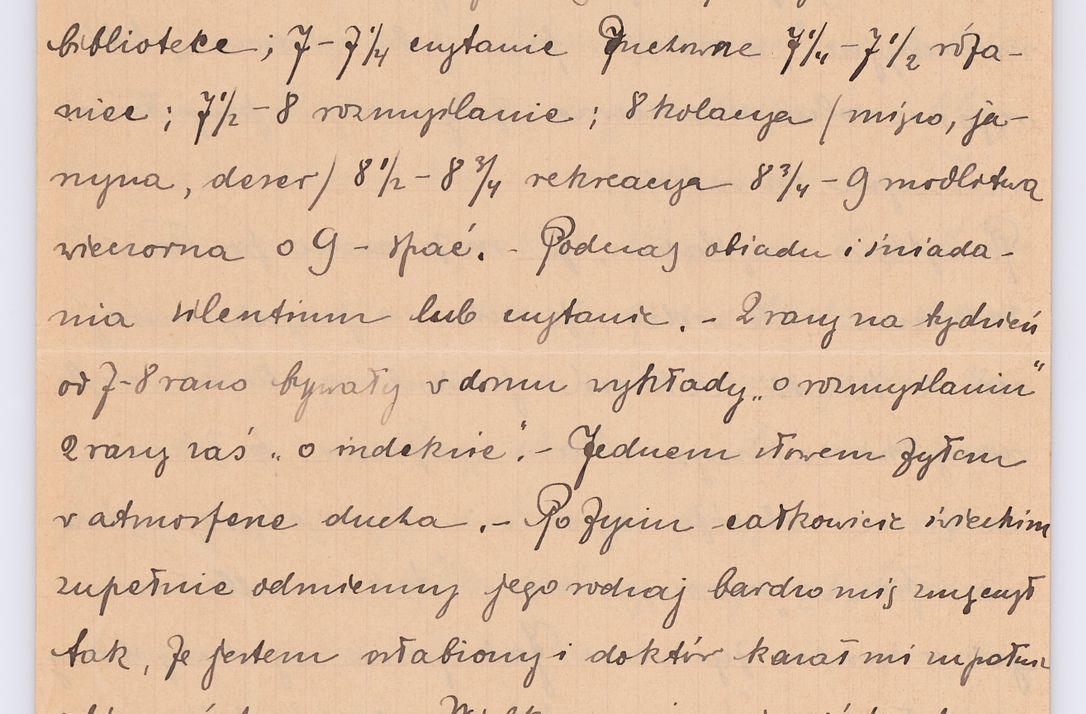 bibliotece; 7–7 1/4 czytanie Duchowne 7 1/4 – 7 1/2 róża-
niec; 7 1/2 – 8 rozmyślanie; 8 kolacya (mięso, ja-
nyna, deser) 8 1/2 – 8 3/4 rekreacya 8 3/4 – 9 modlitwa
wieczorna o 9 – spać. – Podczas obiadu i śniada-
nia silentium lub czytanie. – 2 razy na tydzień
od 7–8 rano bywały w domu wykłady „o rozmyślaniu“
2 razy zaś „o indeksie“. – Jednem słowem żyłem
w atmosferze ducha. – Po życiu całkowicie świeckim
zupełnie odmienny jego rodzaj bardzo mię zmęczył
tak, że jestem osłabiony i doktór kazał mi zupełnie